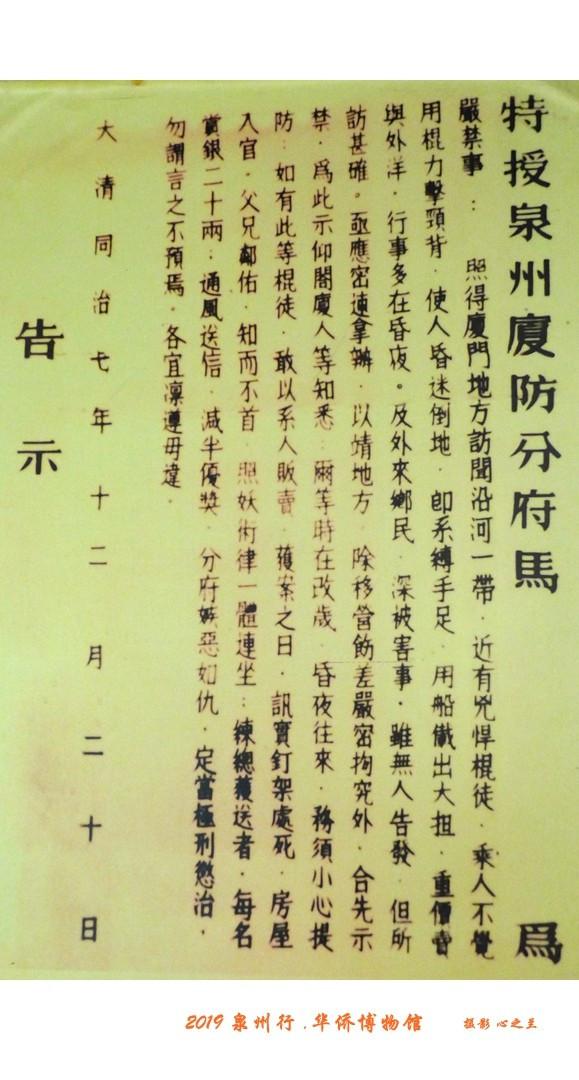 特授泉州廈防分府馬　爲
嚴禁事：　照得廈門地方訪聞沿河一帶．近有兇悍棍徒．乘人不覺
用棍力擊頸背．使人昏迷倒地．卽系縛手足．用船儎出大担．重價賣
與外洋．行事多在昏夜。及外來鄉民．深被害事．雖無人告發．但所
訪甚確。亟應密連拿辦．以靖地方．除移營飭差嚴密拘究外．合先示
禁．爲此示仰閤廈人等知悉：爾等時在改歲．昏夜往來．務須小心提
防．如有此等棍徒．敢以系人販賣．獲案之日．訊實釘架處死．房屋
入官．父兄鄰佑．知而不首．照妖術律一體連坐：練總獲送者．每名
賞銀二十兩；通風送信．減半優獎．分府嫉惡如仇．定當極刑懲治．
勿謂言之不預焉．各宜凜遵毋違．
大清同治七年十二月二十日
告示
2019 泉州行 . 华侨博物馆　摄影 心之至